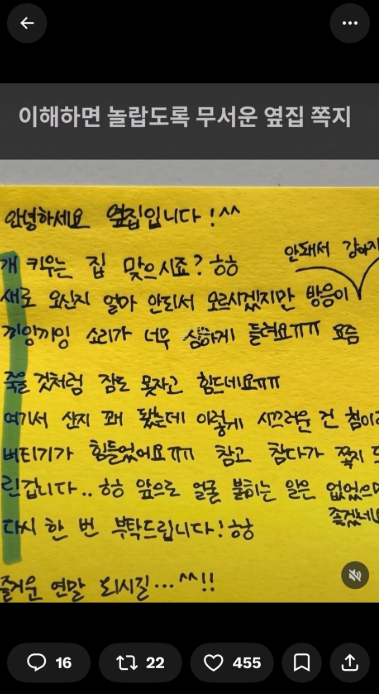 이해하면 놀랍도록 무서운 옆집 쪽지
안녕하세요 옆집입니다!^^
개 키우는 집 맞으시죠? ㅎㅎ
안돼서 강아지
새로 오신지 얼마 안되서 모르시겠지만 방음이
끼잉끼잉 소리가 너무 심하게 들려요ㅠㅠ 요즘
죽을 것처럼 잠도 못자고 힘드네요ㅠㅠ
여기서 산지 꽤 됐는데 이렇게 시끄러운 건 첨이라
버티기가 힘들었어요ㅠㅠ 참고 참다가 쪽지
린겁니다.. ㅎㅎ 앞으로 얼굴 붉히는 일은 없었으면
좋겠네요
다시 한 번 부탁드립니다!ㅎㅎ
즐거운 연말 되시길...^^!!
16 22 455